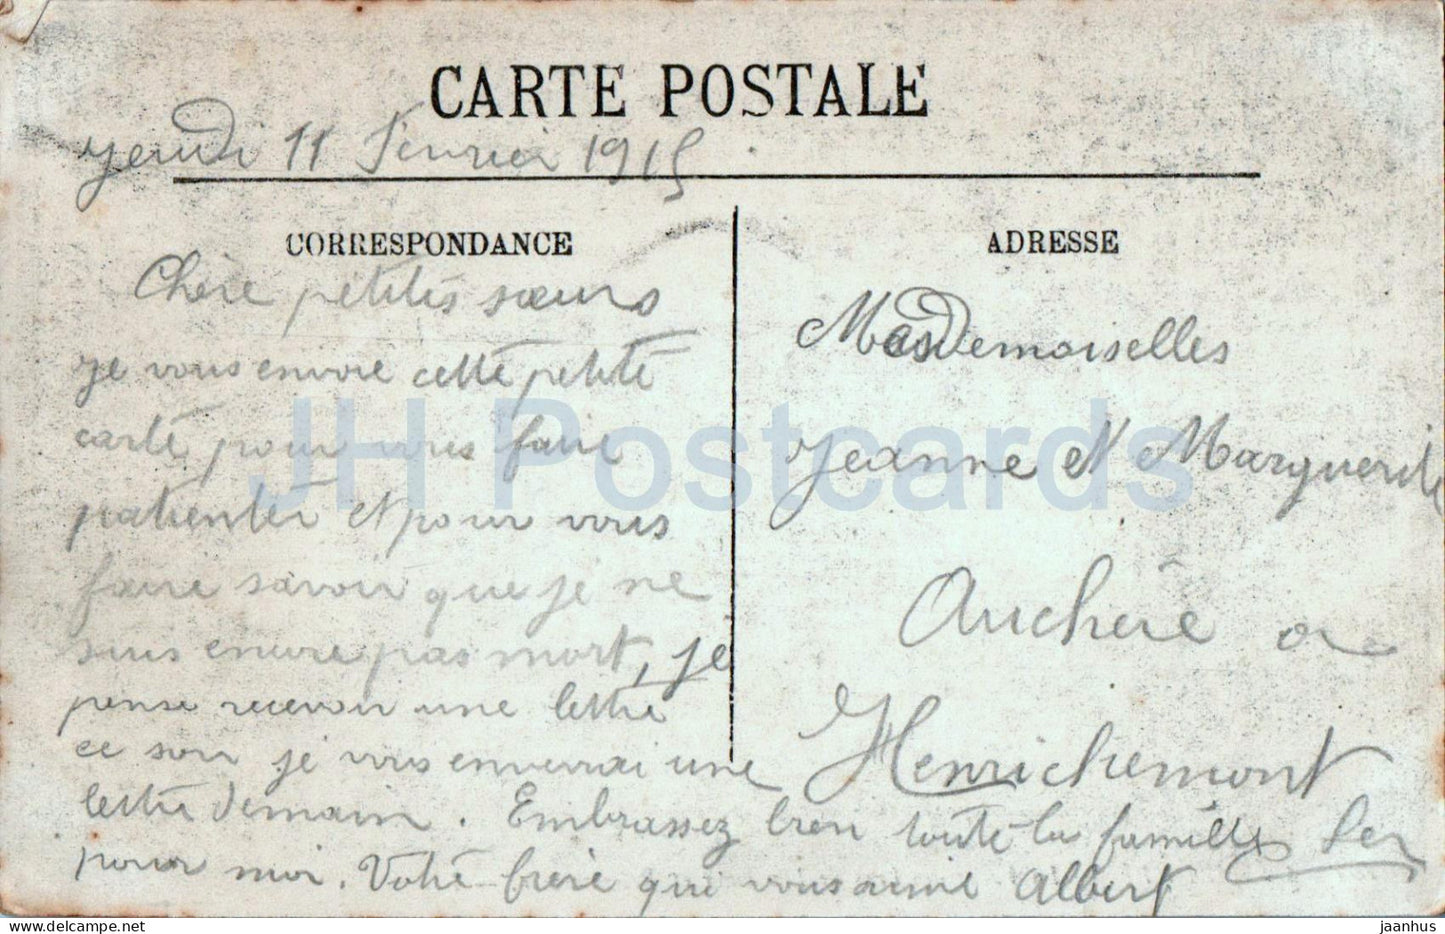 CARTE POSTALE
jeudi 11 Février 1915
CORRESPONDANCE
Chère petites sœurs
je vous envoie cette petite
carte pour vous faire
patienter et pour vous
faire savoir que je ne
suis encore pas mort, je
pense recevoir une lettre
ce soir je vous enverrai une
lettre demain. Embrassez bien toute la famille
pour moi. Votre frère qui vous aime Albert
ADRESSE
Mesdemoiselles
Jeanne et Marguerite
Auchère a
Henrichemont
Cher
JH Postcards
jaanhus @ delcampe.net